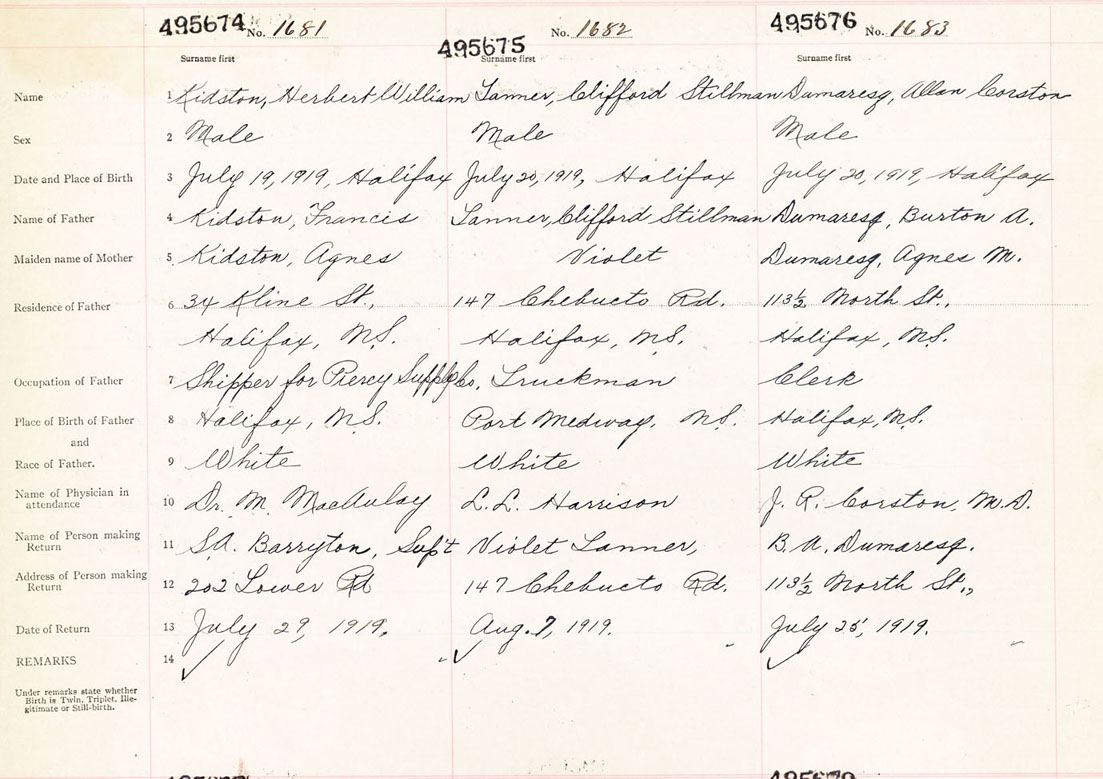 495674 No. 1681 495675 No. 1682 495676 No. 1683
Surname first Surname first Surname first
Name 1 Kidston, Herbert William Tanner, Clifford Stillman Dumaresq, Allan Corston
Sex 2 Male Male Male
Date and Place of Birth 3 July 19, 1919, Halifax July 20, 1919, Halifax July 20, 1919, Halifax
Name of Father 4 Kidston, Francis Tanner, Clifford Stillman Dumaresq, Burton A.
Maiden name of Mother 5 Kidston, Agnes Violet Dumaresq, Agnes M.
Residence of Father 6 34 Kline St., 147 Chebucto Rd. 113½ North St.,
Halifax, N.S. Halifax, N.S. Halifax, N.S.
Occupation of Father 7 Shipper for Piercy Supply Co. Truckman Clerk
Place of Birth of Father 8 Halifax, N.S. Port Medway, N.S. Halifax, N.S.
and
Race of Father. 9 White White White
Name of Physician in attendance 10 Dr. M. MacAulay L.L. Harrison J. R. Corston, M.D.
Name of Person making Return 11 S.A. Barryton, Sup't Violet Tanner, B. A. Dumaresq.
Address of Person making Return 12 202 Tower Rd 147 Chebucto Rd. 113½ North St.,
Date of Return 13 July 29, 1919. Aug. 7, 1919. July 25, 1919.
REMARKS 14
Under remarks state whether
Birth is Twin, Triplet, Ille-
gitimate or Still-birth.